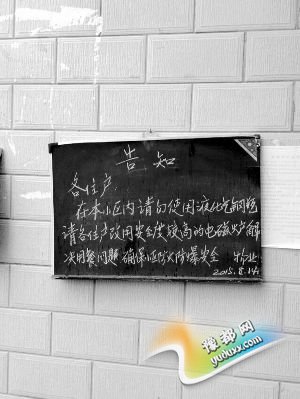 告知
各住户:
在本小区内请勿使用液化气钢瓶
请各住户改用安全度较高的电磁炉解
决用餐问题 确保小区防火防爆安全 物业
2015.8.14
豫都网
yuduxx.com